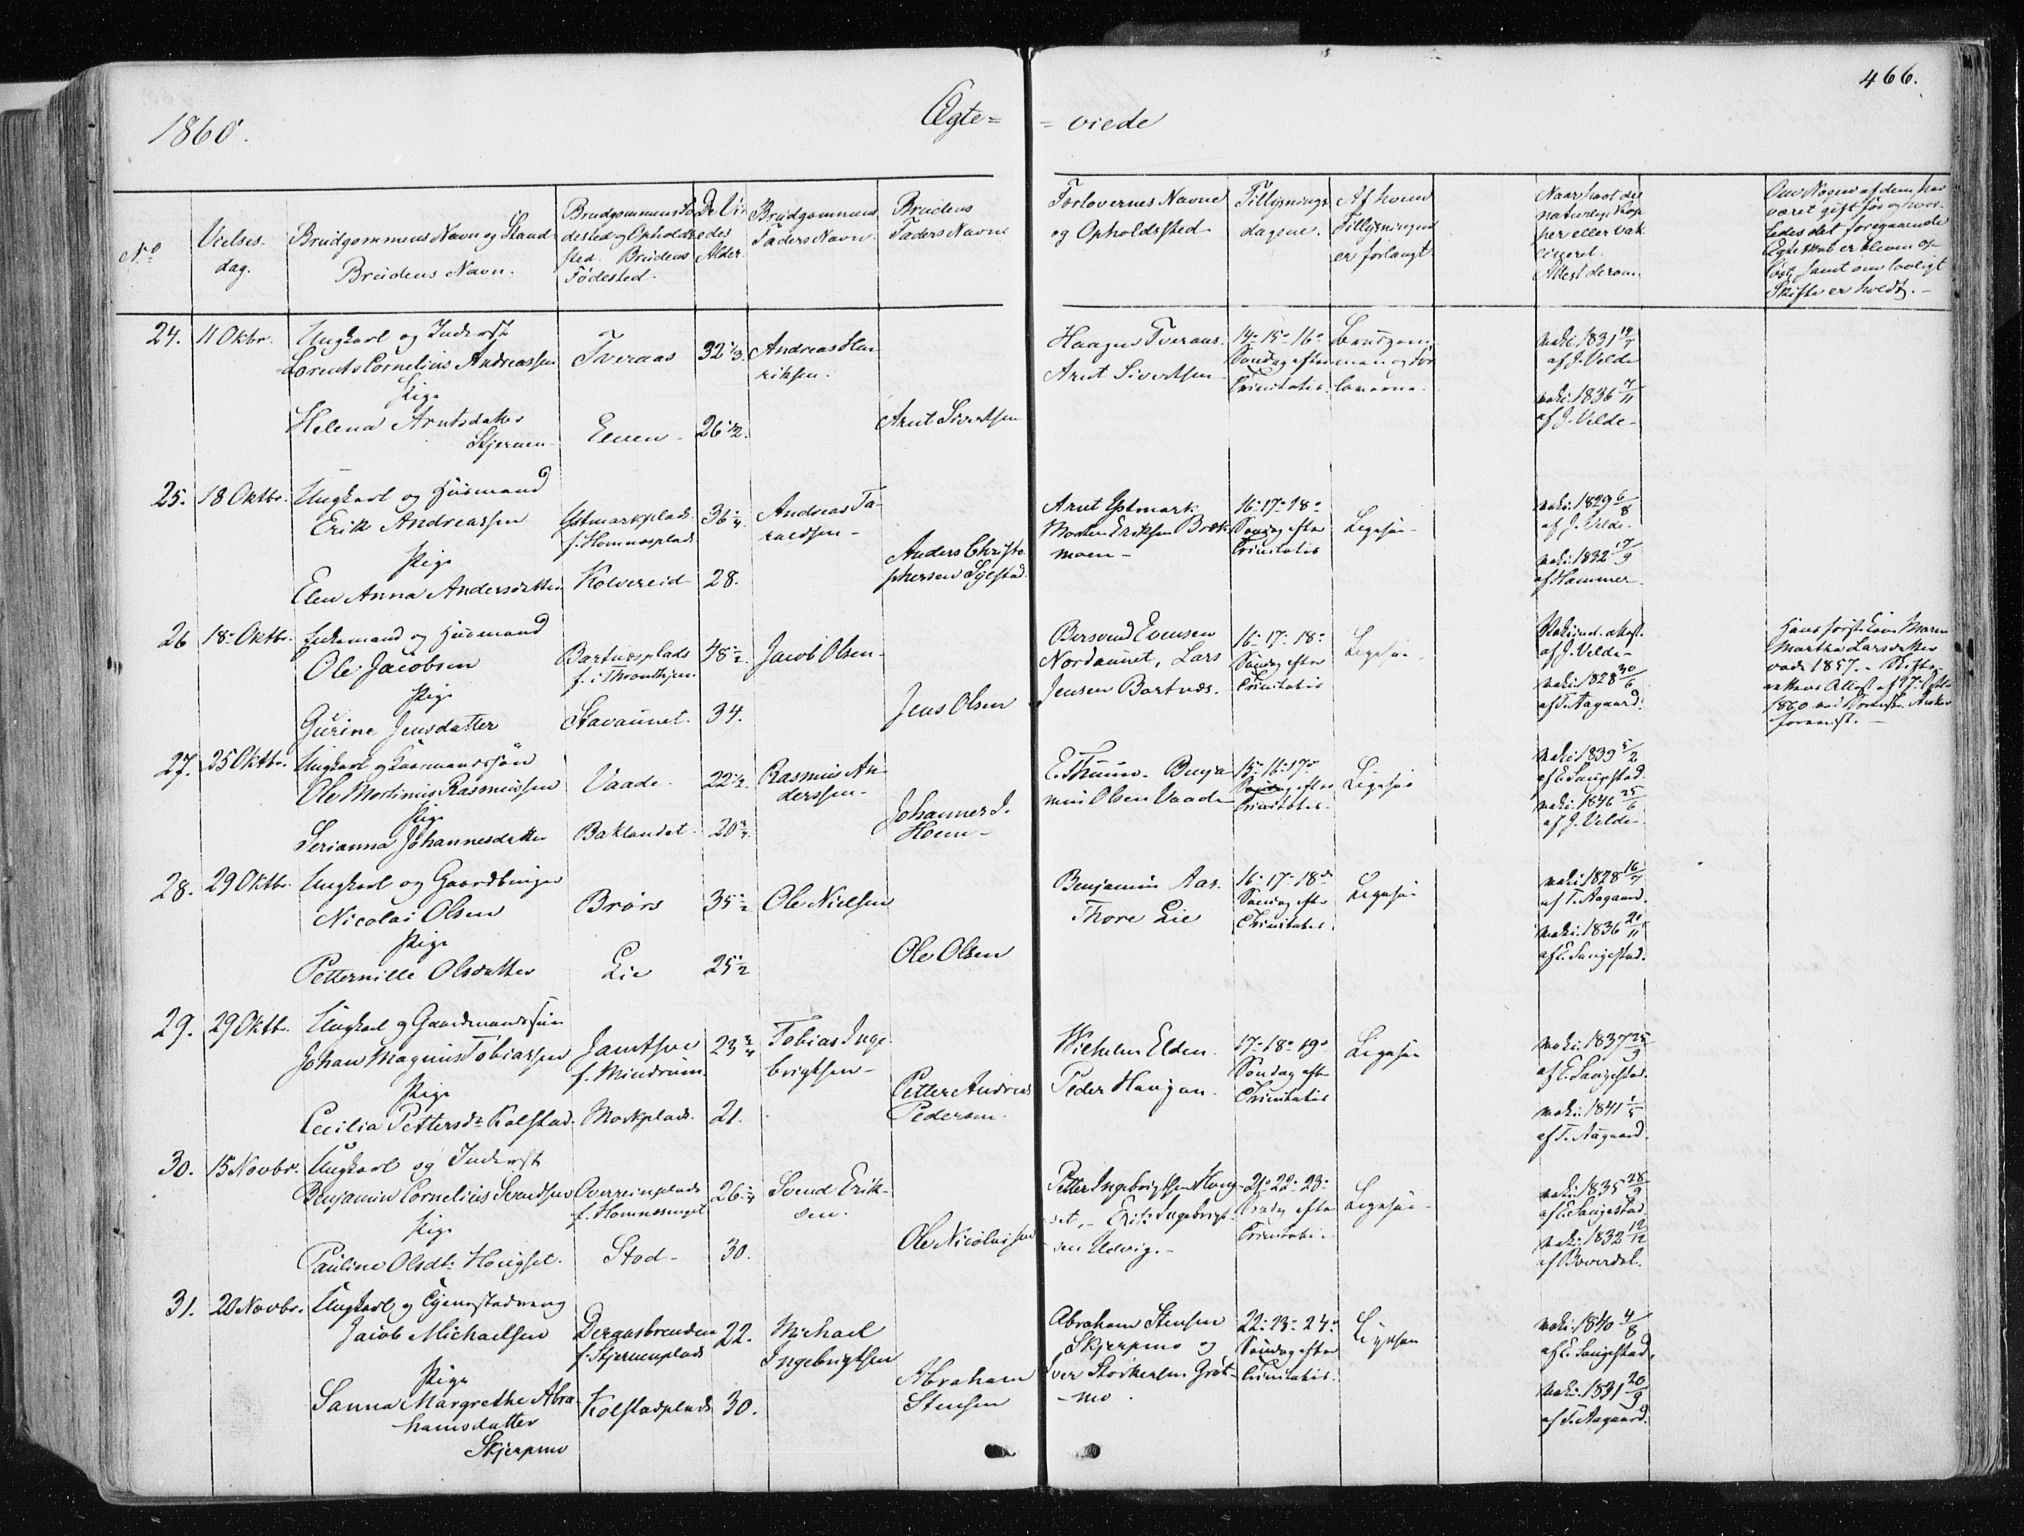 466.
1860.
Ægte= =viede
No
Vielses-
dag.
Brudgommens Navn og Stand
Brudens Navn.
Brudgommens Fø
dested og Opholds
sted. Brudens
Fødested.
De Vi
edes
Alder.
Brudgommens
Faders Navn.
Brudens
Faders Navn
Forlovernes Navne
og Opholdsted
Tillysnings
dagene.
Af hvem
Tillysningen
er forlangt
Naar havt de
naturlige Kop
per eller vak
cineret.
Attest derom.
Om Nogen af dem har
været gift før og hvor-
ledes det foregaaende
Egteskab er bleven op
løst, samt om lovligt
Skifte er holdt.
24. 11 Oktbr. Ungkarl og Inderst
Lorents Cornelius Andreassen
Pige
Helena Arntsdatter
Skjerven
Tveraas
32 1/3.
26 1/2.
Andreas Hen
riksen.
Arnt Sivertsen
Haagen Tveraas.
Arnt Sivertsen
14- 15- 16-
Søndag efter
Trinitatis.
vaki. 1831 19/7
af J. Velde
vaki. 1836 7/11
af J. Velde
25. 18 Oktbr. Ungkarl og Husmand
Erik Andreassen
Pige
Elen Anna Andersdatter
Ystmarkplads
f. Homnesplads
Kolvereid
36 1/4
28.
Andreas Ta-
raldsen
Anders Christo
phersen Sylstad.
Arnt Ystmark
Morten Eriksen Bræk
moen
16- 17- 18-
Søndag efter
Trinitatis
Ligesaa
vaki. 1829 6/8
af J. Velde.
vaki. 1832 17/9
af Hammer.
26 18 Oktbr. Enkemand og Husmand
Ole Jacobsen
Pige
Gurine Jensdatter
Bartnesplads
f. i Throndhjem
Stavaunet.
48 1/2.
34.
Jacob Olsen
Jens Olsen
Bersvend Evensen
Nordaunet, Lars
Jensen Bartnes.
16- 17- 18-
Søndag efter
Trinitatis
Ligesaa
af J. Velde
vaki. 1828 30/6
af T. Aagaard.
Hans første Kone Maren
Martha Larsdatter
død 1857. Skifte-
rettens Attest af 17 Oktbr
1860
forevist.
27. 25 Oktbr. Ungkarl og Gaardmandssøn
Ole Martinus Rasmussen
Pige
Serianna Johannesdatter
Vaade.
Baklandet.
22 1/2.
20 3/4
Rasmus An
derssen
Johannes J.
Hoem
E. Thuun. Benja
min Olsen Vaade
15- 16- 17-
Søndag efter
Trinitatis.
Ligesaa
vaki. 1839 5/2
af E. Langstad.
vaki. 1846 25/6
af J. Velde
28. 29 Oktbr. Ungkarl og Gaardbruger
Nicolai Olsen
Pige
Petternille Olsdatter
Brørs
Lie
35 1/2
25 1/2
Ole Nielsen
Ole Olsen
Benjamin Aas.
Thore Lie
16- 17- 18de
Søndag efter
Trinitatis.
Ligesaa
vaki. 1828 16/7
af T. Aagaard.
vaki. 1836 20/11
af E. Langstad.
29. 29 Oktbr. Ungkarl og Gaardmandssøn
Johan Magnus Tobiassen
Pige
Cecilia Pettersdr Kolstad.
Jamtsve
f. Mindrum.
Morkplads.
23 3/4
21.
Tobias Inge
brigtsen
Petter Andreas
Pedersen.
Wilhelm Elden.
Peder Haugan.
17- 18- 19-
Søndag eftr
Trinitatis
Ligesaa
vaki. 1837 25/9
af E. Langstad.
vaki. 1841 1/5
af T. Aagaard.
30. 15 Novbr. Ungkarl og Inderst
Benjamin Cornelius Svendsen
Pige
Pauline Olsdtr Hougset.
Overreinplads
f. Homnesvaget
Stod
26 1/4
30.
Svend Erik-
sen.
Ole Nicolaisen
Petter Ingebrigtsen Houg-
set, Erik Ingebrigt-
sen Udvig.
21- 22- 23-
Søndag efter
Trinitatis.
Ligesaa
vaki. 1835 28/9
af E. Langstad
vaki. 1832 12/12
af Boverdal.
31. 20 Novbr. Ungkarl og
Jacob Michaelsen
Pige
Sanna Margrethe Abra
hamsdatter
Skjerpmo
Dergasbrenden
f. Skjervenplads
Kolstadplads
22.
30.
Michael
Ingebrigtsen
Abraham
Stensen
Abraham Stensen
Skjerpmo og
Iver Storkersen Grøt-
mo.
22- 23- 24-
Søndag efter
Trinitatis.
Ligesaa
vaki. 1840 4/8
af E. Langstad.
vaki. 1831 20/9
af T. Aagaard.